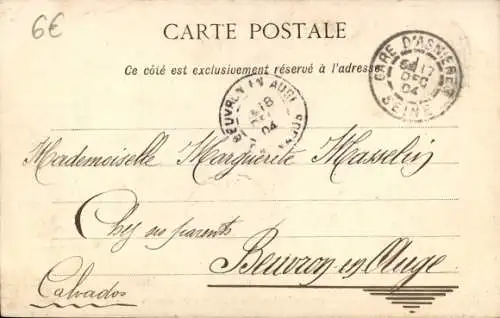 6€
CARTE POSTALE
Ce côté est exclusivement réservé à l'adresse
GARE D'ASNIERES
17
DEC
04
SEINE
BEUVRON EN AUGE
18
04
Mademoiselle Marguerite Masselin
Chez ses parents
Beuvron en Auge
Calvados